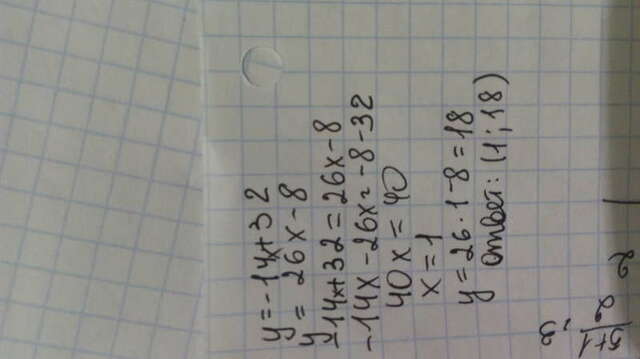 y=-14x+32
y = 26x-8
-14x+32=26x-8
-14x-26x=-8-32
40x=40
x=1
y=26·1-8=18
ответ: (1;18)
5+1
2
,3
2